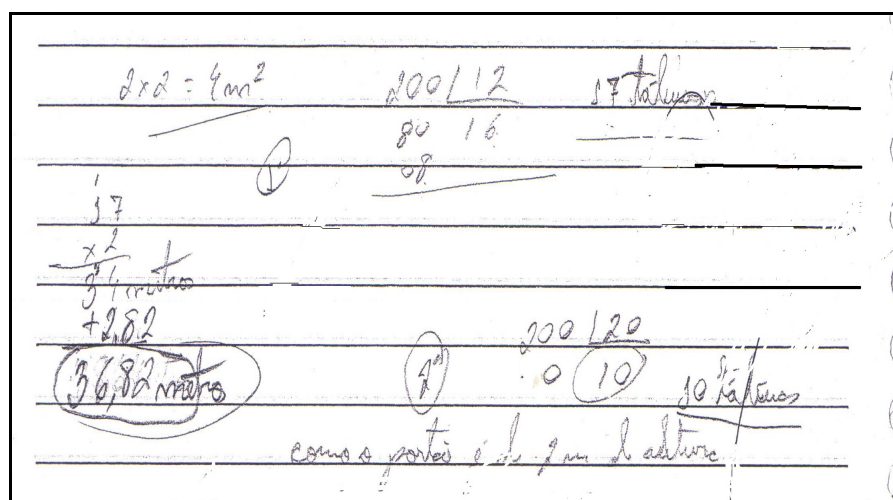 2x2 = 4m²
200 | 12
80 16
08
17 tábuas
1º
1
17
x2
34 metros
+2,82
36,82 metros
2ª
200 | 20
0 10
10 tábuas
como o portão é de 2m de altura